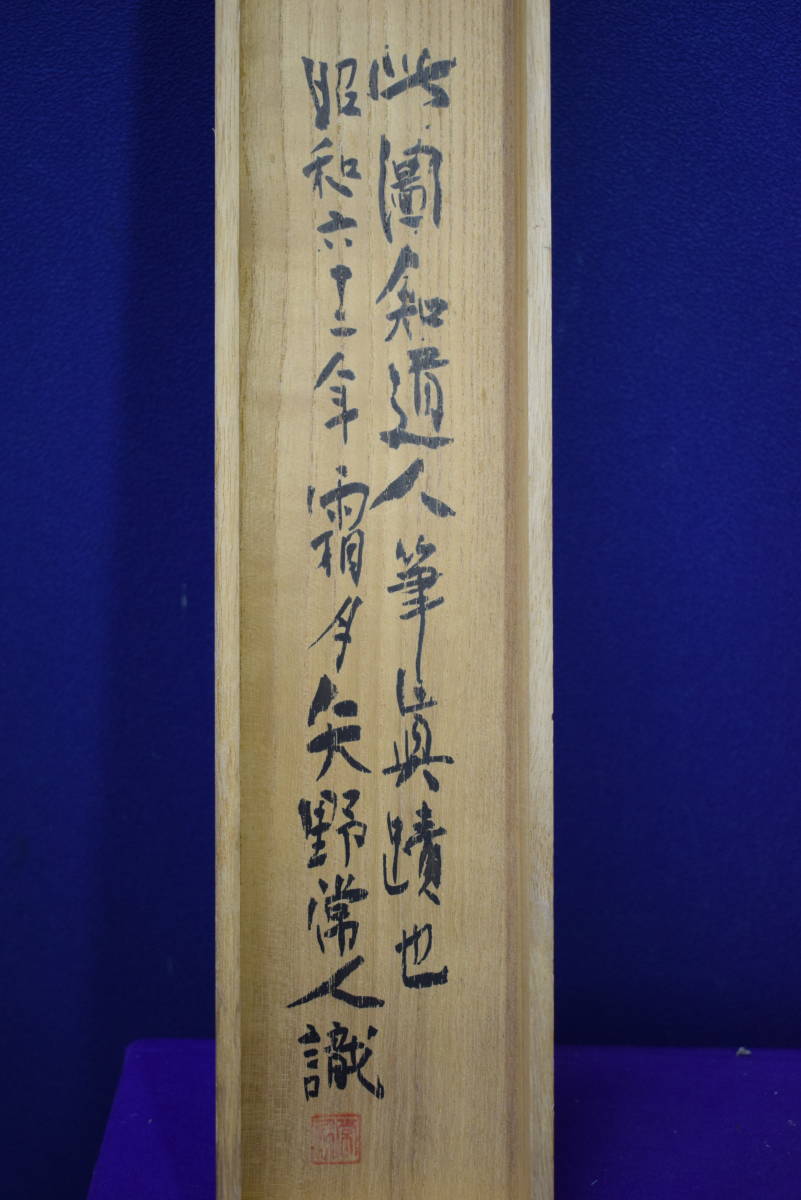 此圖知道人筆真蹟也
昭和六十二年霜月矢野常人識